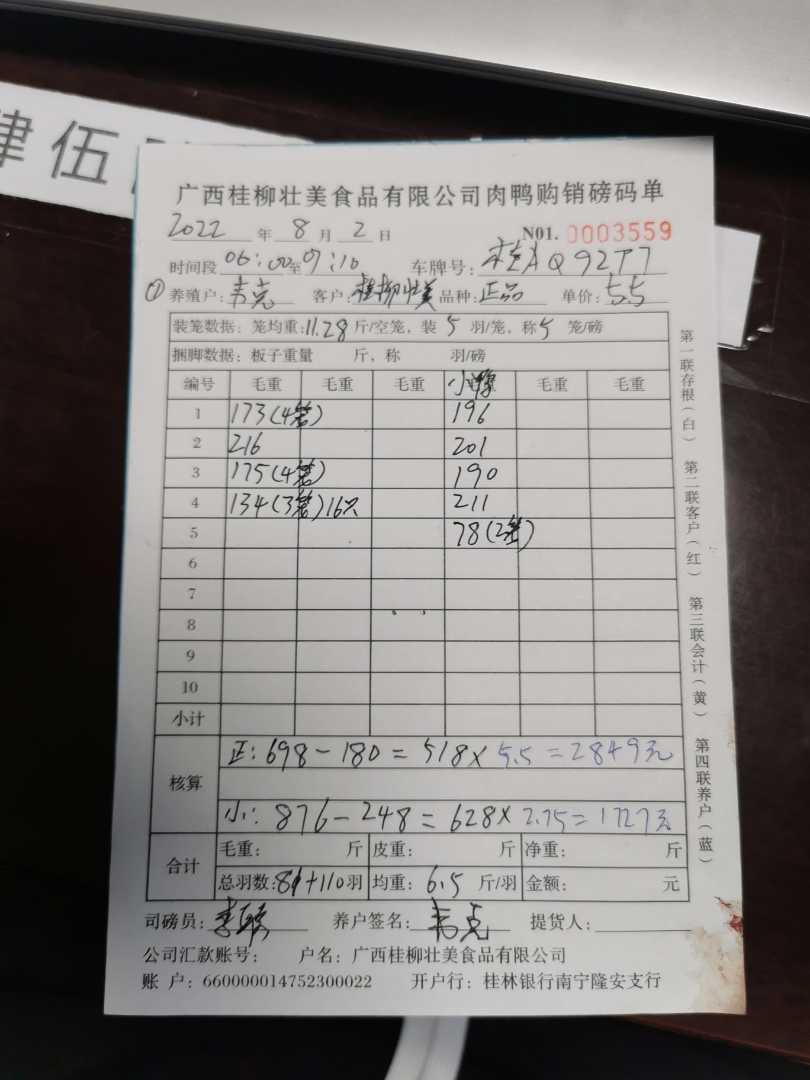 肆伍
广西桂柳壮美食品有限公司肉鸭购销磅码单
2022 年 8 月 2 日 N01. 0003559
时间段 06:00至07:10 车牌号: 桂AQ92T7
① 养殖户: 韦克 客户: 桂柳壮美 品种: 正品 单价: 5.5
装笼数据: 笼均重: 11.28 斤/空笼, 装 5 羽/笼, 称 5 笼/磅
捆脚数据: 板子重量 斤, 称 羽/磅
编号 毛重 毛重 毛重 小鸭 毛重 毛重
1 173(4笼) 196
2 216 201
3 175(4笼) 190
4 134(3笼)16只 211
5 78(2笼)
6
7
8
9
10
小计
核算 正: 698-180=518×5.5=2849元
小: 876-248=628×2.75=1727元
合计 毛重: 斤 皮重: 斤 净重: 斤
总羽数: 81+110羽 均重: 6.5 斤/羽 金额: 元
司磅员: 养户签名: 韦克 提货人:
公司汇款账号: 户名: 广西桂柳壮美食品有限公司
账 户: 660000014752300022 开户行: 桂林银行南宁隆安支行
第一联存根(白) 第二联客户(红) 第三联会计(黄) 第四联养户(蓝)